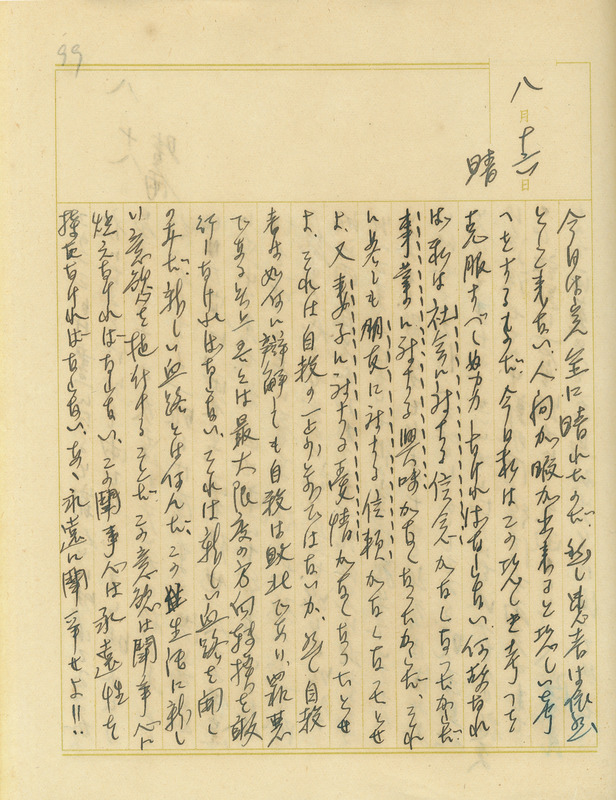 99
八月十六日
晴
今日は完全に晴れたのだ。然し患者は依然
として来ない、人間が暇が出来ると恐しい考
へをするものだ。今日私はこの恐しき考へを
克服すべく努力しなければならない。何故なれ
ば私は社会に対する信念がなくなったからだ。
事業に対する興味がなくなったからだ、それ
に若しも朋友に対する信頼がなくなったとせ
よ、又妻子に対する愛情がなくなったとせ
よ、それは自殺の一歩前ではないか、然し自殺
者は如何に辯解しても自殺は敗北であり、罪悪
である以上吾々は最大限度の方向轉換を敢
行しなければならない。それは新しい血路を開く
のみだ。新しい血路とは何んだ。この生活に新し
い意慾を施行することだ この意慾は闘争心に
燃えなければならない、この闘争心は永遠性を
持たなければならない、あゝ永遠に闘争せよ!!